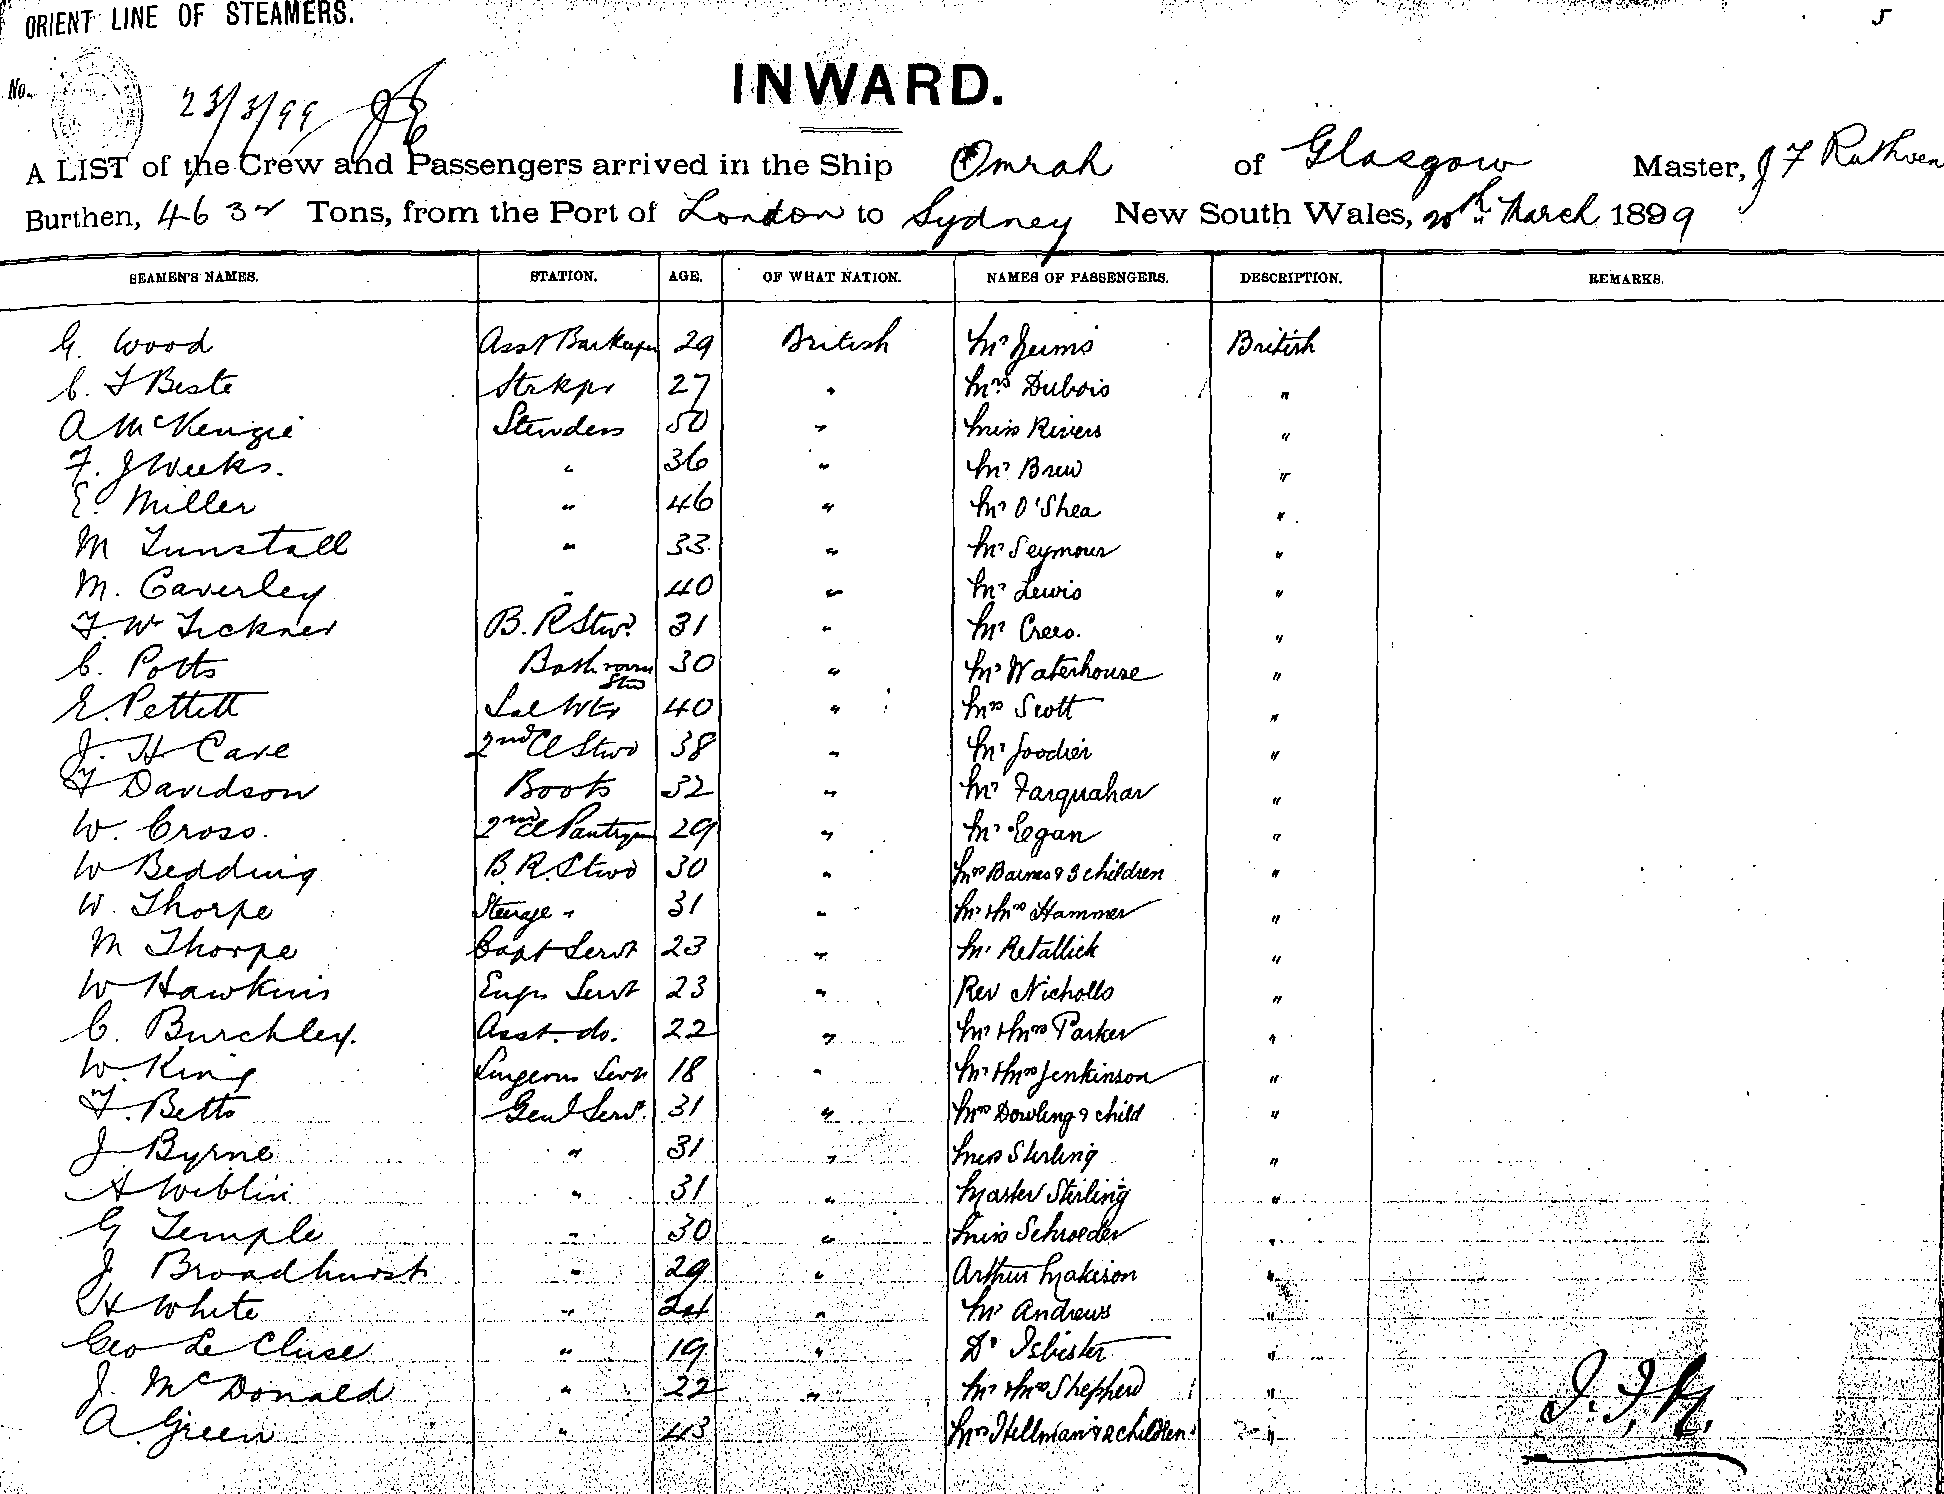 ORIENT LINE OF STEAMERS.
5
No.
23/3/99
INWARD.
A LIST of the Crew and Passengers arrived in the Ship Omrah of Glasgow Master, J F Ruthven
Burthen, 4632 Tons, from the Port of London to Sydney New South Wales, 20th March 1899
SEAMEN'S NAMES. STATION. AGE. OF WHAT NATION. NAMES OF PASSENGERS. DESCRIPTION. REMARKS.
G. Wood Asst Barkeeper 29 British Mr Jeims British
C. F Beste Strkpr 27 " Mrs Dubois "
A McKenzie Stewdess 50 " Miss Rivers "
F. J Weeks. " 36 " Mr Brew "
E. Miller " 46 " Mr O'Shea "
M Tunstall " 33 " Mr Seymour "
M. Caverley " 40 " Mr Lewis "
F. W Tickner B. R Stwd 31 " Mr Crees. "
C. Potts Bathroom Stwd 30 " Mr Waterhouse "
E. Pettett Sal Wtr 40 " Mrs Scott "
J. H Cave 2nd Cl Stwd 38 " Mr Goodier "
F Davidson Boots 32 " Mr Farquahar "
W. Cross. 2nd Cl Pantryman 29 " Mr Egan "
W Bedding B. R. Stwd 30 " Mrs Barnes & 3 children "
W. Thorpe Steerage " 31 " Mr & Mrs Hammer "
M Thorpe Capt Servt 23 " Mr Retallick "
W Hawkins Engrs Servt 23 " Rev Nicholls "
C. Burchley. Asst. do. 22 " Mr & Mrs Parker "
W. King Surgeons Servt 18 " Mr & Mrs Jenkinson "
F. Betts Genl Servt. 31 " Mrs Dowling & child "
J Byrne " 31 " Miss Stirling "
A Wiblin " 31 " Master Stirling "
G Temple " 30 " Miss Schroeder "
J Broadhurst " 29 " Arthur Makeson "
H White " 21 " Mr Andrews "
Geo Le Cluse " 19 " Dr Isbister "
J. McDonald " 22 " Mr & Mrs Shepherd "
A. Green " 43 " Mrs Hellman & 2 children "